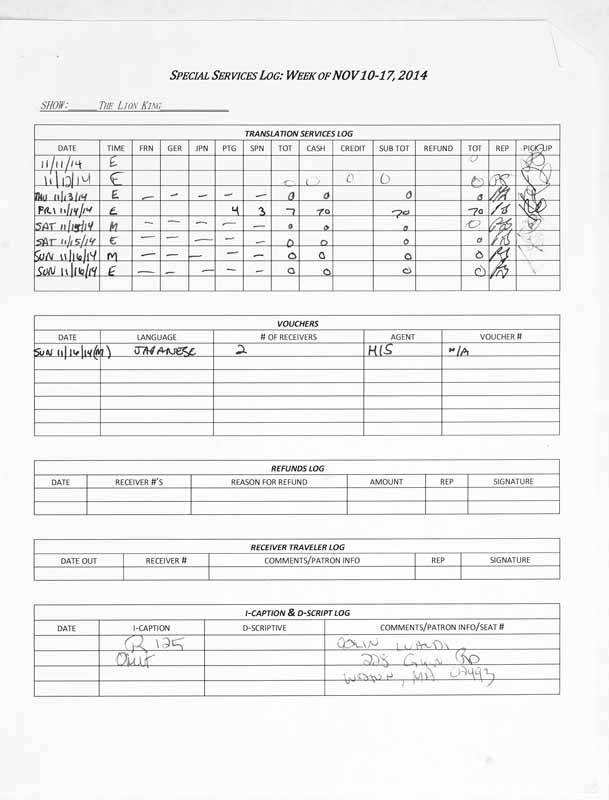 SPECIAL SERVICES LOG: WEEK OF NOV 10-17, 2014
SHOW: THE LION KING
TRANSLATION SERVICES LOG
DATE TIME FRN GER JPN PTG SPN TOT CASH CREDIT SUB TOT REFUND TOT REP PICK-UP
11/11/14 E 0
11/12/14 E 0 0 0 0 0
THU 11/13/14 E — — — — — 0 0 0 0
FRI 11/14/14 E 4 3 7 70 70 70
SAT 11/15/14 M — — — — — 0 0 0 0
SAT 11/15/14 E — — — — — 0 0 0 0
SUN 11/16/14 M — — — — — 0 0 0 0
SUN 11/16/14 E — — — — — 0 0 0 0
VOUCHERS
DATE LANGUAGE # OF RECEIVERS AGENT VOUCHER #
SUN 11/16/14(M) JAPANESE 2 HIS N/A
REFUNDS LOG
DATE RECEIVER #'S REASON FOR REFUND AMOUNT REP SIGNATURE
RECEIVER TRAVELER LOG
DATE OUT RECEIVER # COMMENTS/PATRON INFO REP SIGNATURE
I-CAPTION & D-SCRIPT LOG
DATE I-CAPTION D-SCRIPTIVE COMMENTS/PATRON INFO/SEAT #
R 125 COLIN
228 RD
MA 02493